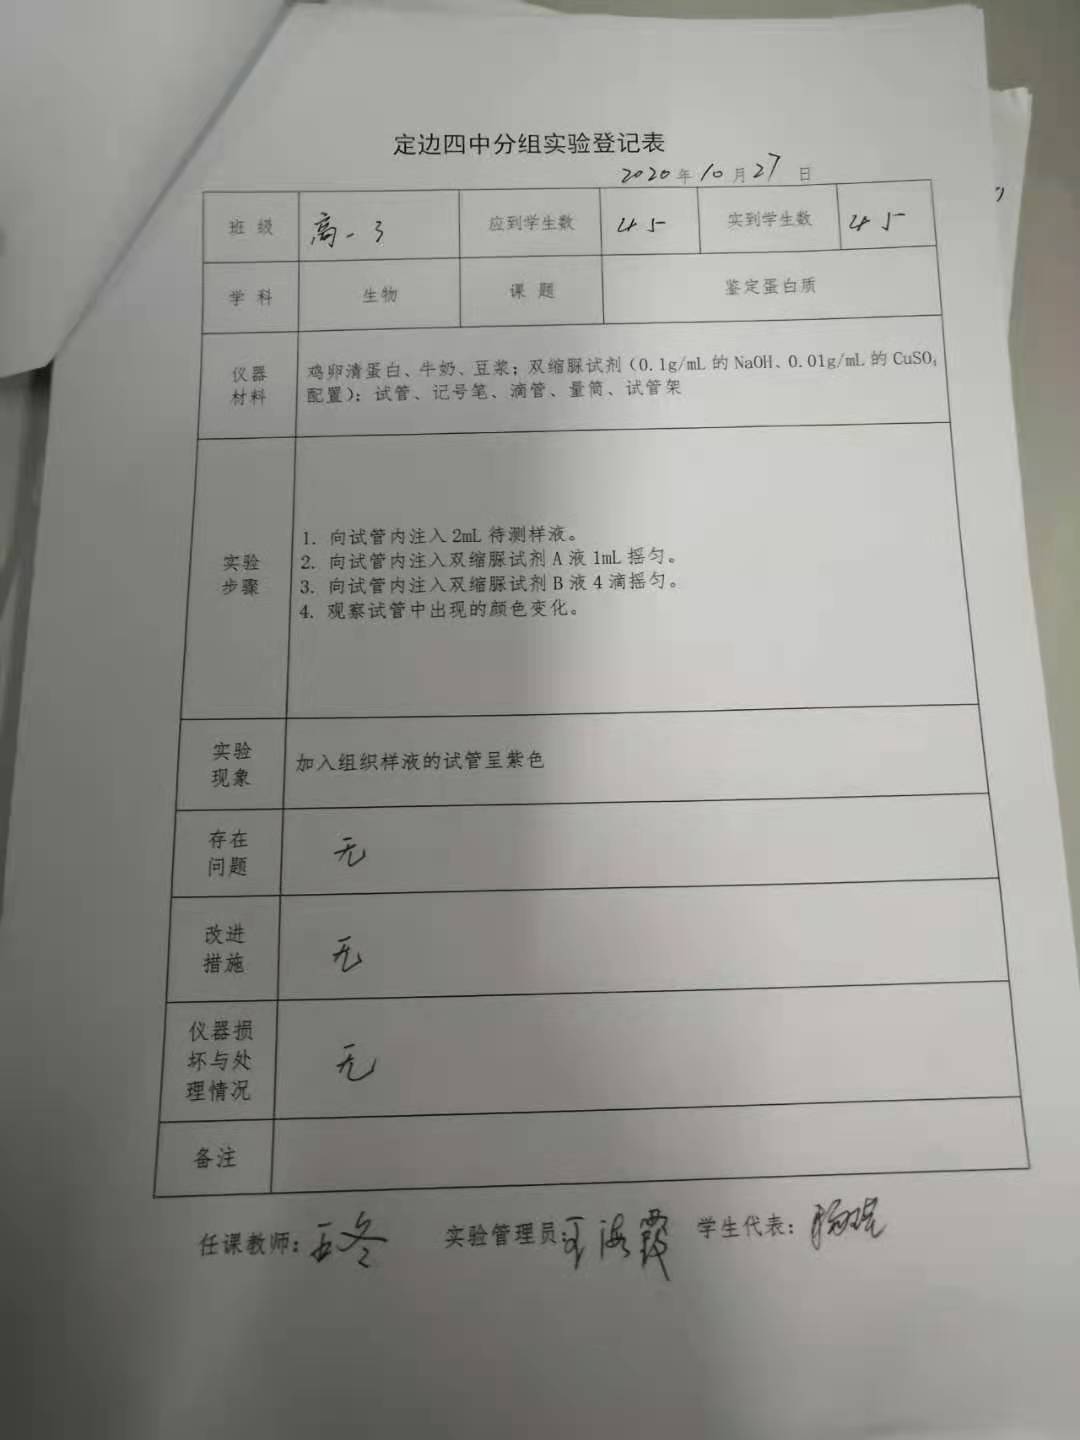 定边四中分组实验登记表
2020年10月27日
班 级 高一3 应到学生数 45 实到学生数 45
学 科 生物 课 题 鉴定蛋白质
仪器
材料
鸡卵清蛋白、牛奶、豆浆；双缩脲试剂（0.1g/mL 的 NaOH、0.01g/mL 的 CuSO₄
配置）；试管、记号笔、滴管、量筒、试管架
实验
步骤
1. 向试管内注入 2mL 待测样液。
2. 向试管内注入双缩脲试剂 A 液 1mL 摇匀。
3. 向试管内注入双缩脲试剂 B 液 4 滴摇匀。
4. 观察试管中出现的颜色变化。
实验
现象
加入组织样液的试管呈紫色
存在
问题
无
改进
措施
无
仪器损
坏与处
理情况
无
备注
任课教师： 实验管理员：王海霞 学生代表：